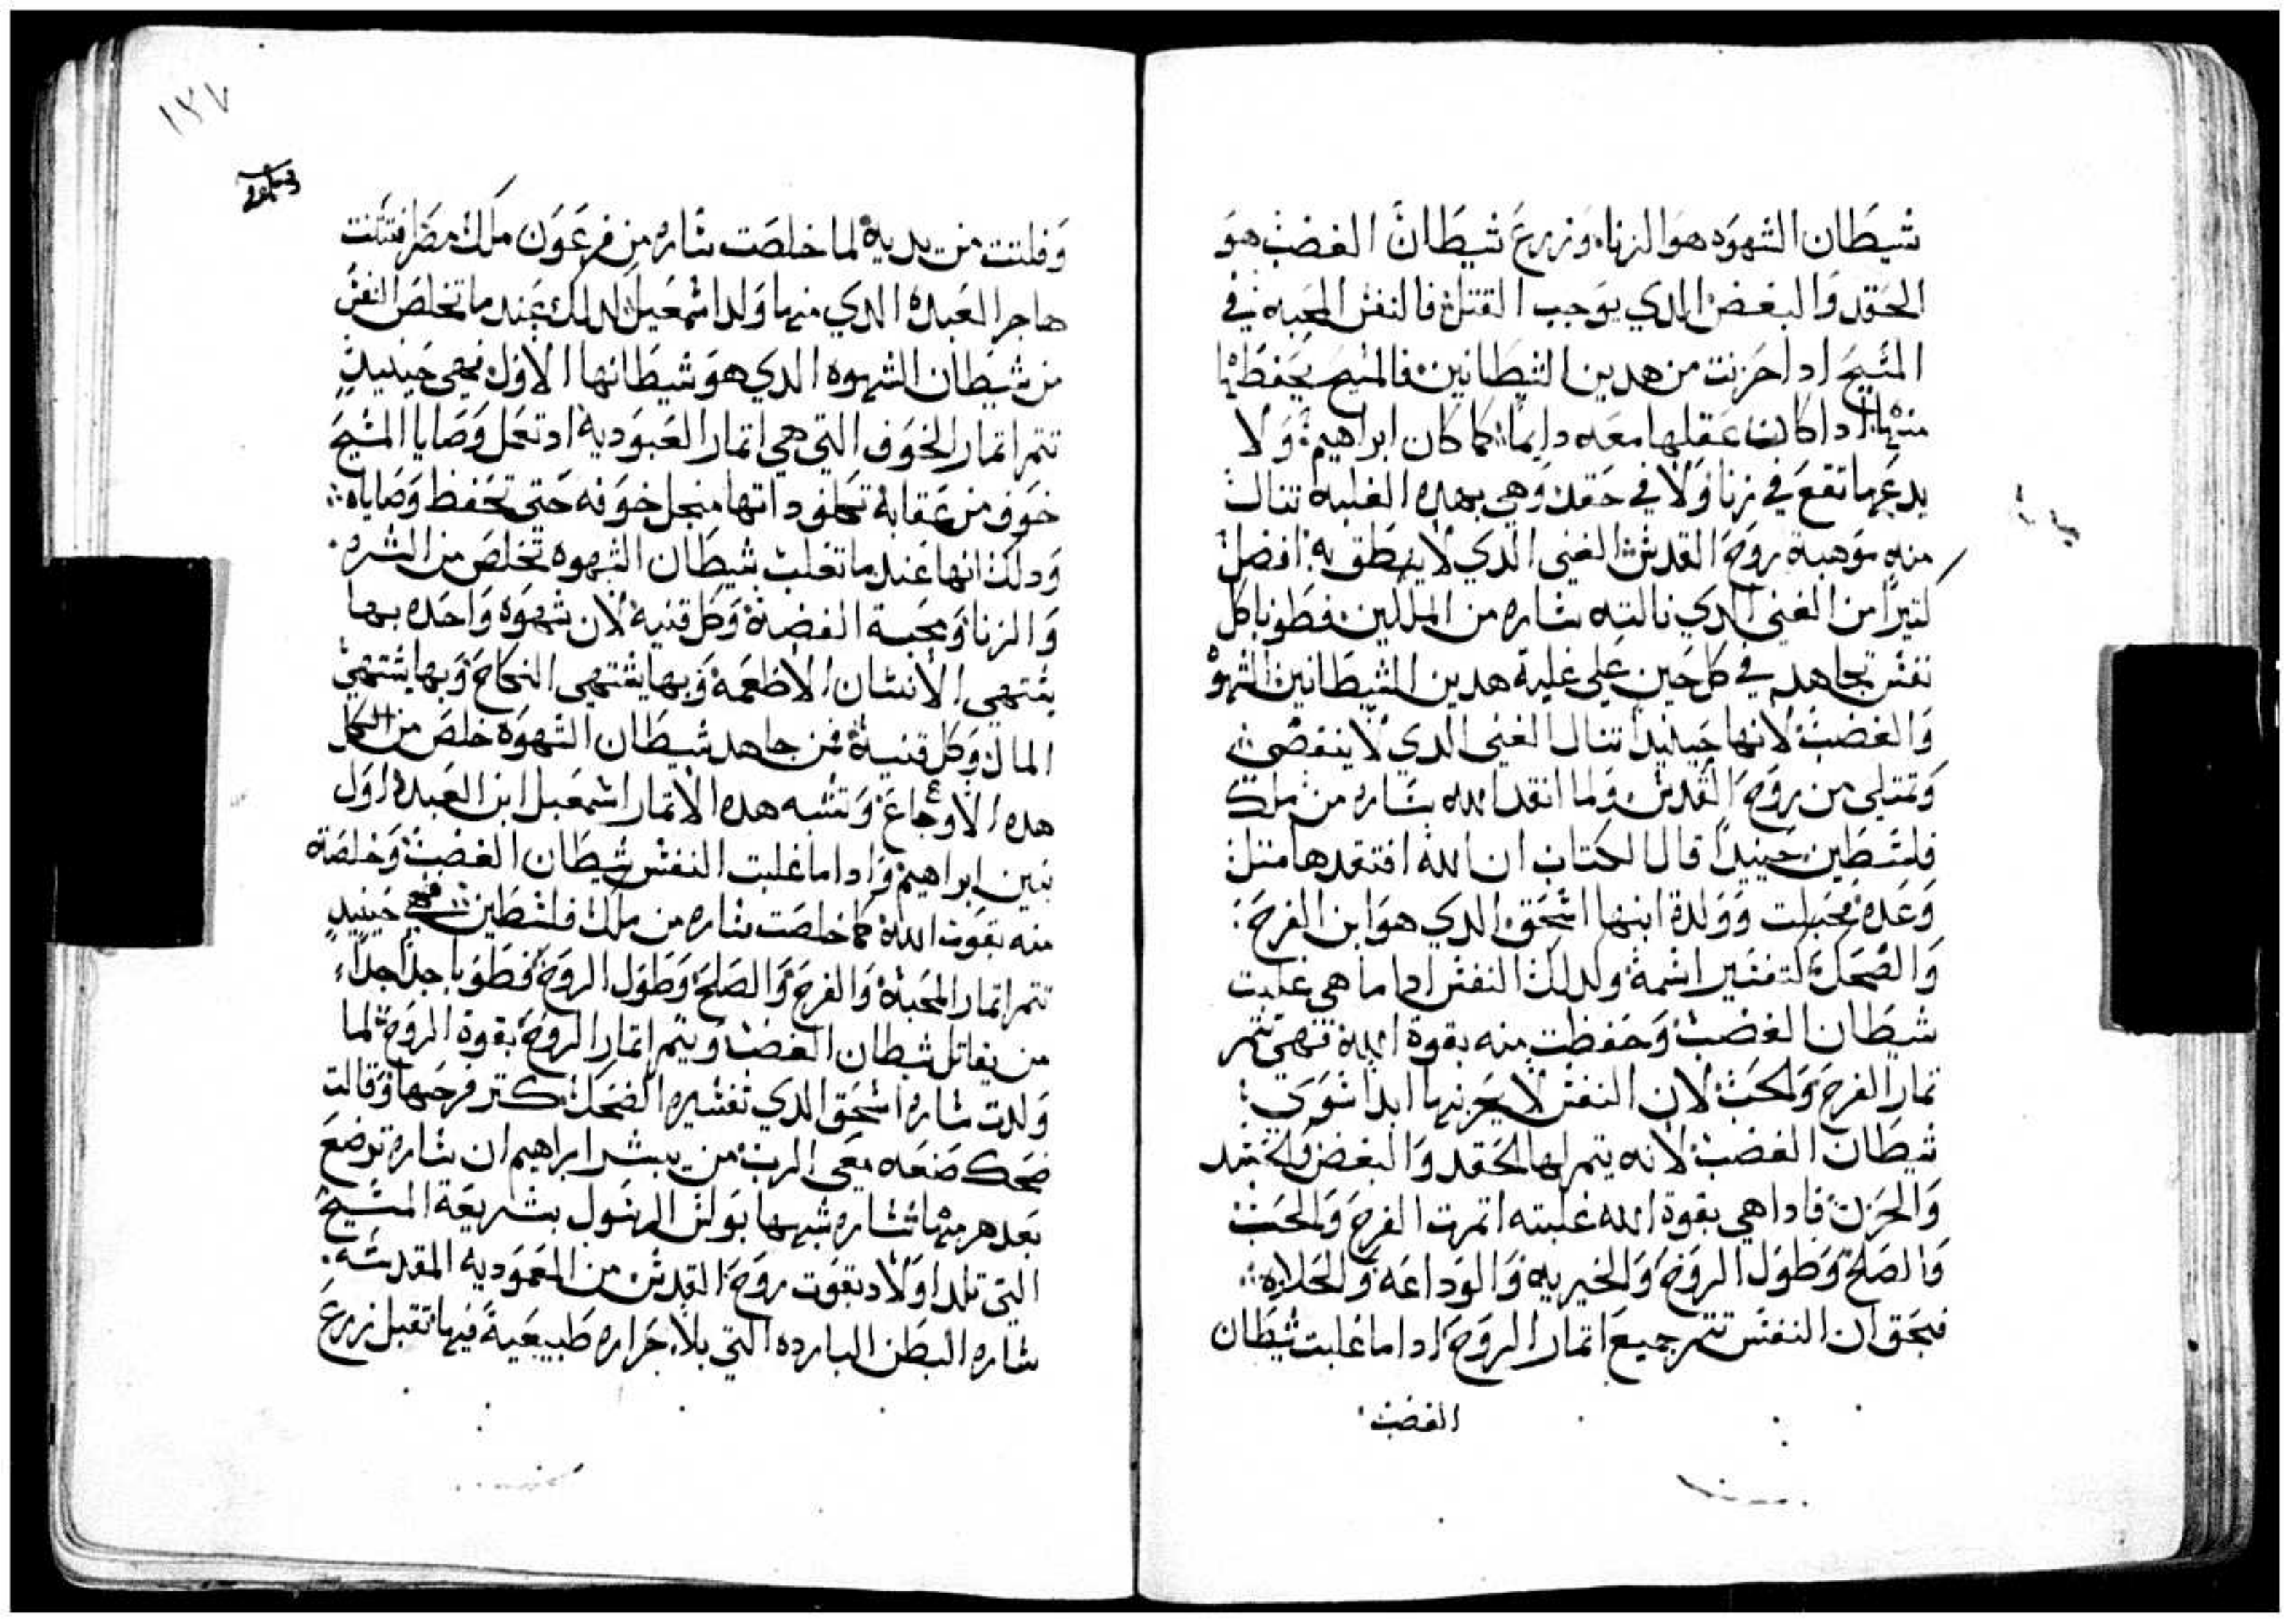 شيطان الشهوه هو الزنا، وزرع شيطان الغضب هو
الحقد والبغض الذي يوجب القتل، فالنفس المحبه في
المسيح ادا حزنت من هدين الشيطانين فالمسيح يحفظها
منها ادا كان عقلها معه دايماً كما كان ابراهيم، ولا
يدعها تقع في زنا ولا في حقد، وهي بهده الغلبه تنال
منه موهبة روح القدس الغني الدي لا ينطق به افضل
كتيراً من الغني الدي نالته ساره من الملكين فطوبا كل
نفس تجاهد في كل حين علي غلبة هدين الشيطانين الشهوه
والغضب لانها حينيداً تنال الغني الدي لا ينقضي
وتمتلي من روح القدس ولما انقد الله ساره من ملك
فلسطين حينيداً قال الكتاب ان الله افتقدها متل
وعده فحبلت وولدة ابنها اسحق الدي هو ابن الفرح
والضحك لتفسير اسمه ولدلك النفس ادا ما هي غلبت
شيطان الغضب وحفظت منه بقوة الله فهي تتمر
تمار الفرح والحب لان النفس لا يحزنها ابداً سوي
شيطان الغضب لانه يتمر لها الحقد والبغض والحسد
والحزن فادا هي بقوة الله غلبته اتمرت الفرح والحب
والصلح وطول الروح والخيريه والوداعه والحلاوه
فبحق ان النفس تتمر جميع اتمار الروح ادا ما غلبت شيطان
الغضب
١٣٧
وفلتت من يديه لما خلصت ساره من فرعون ملك مصر اقتنت
هاجر العبده الدي منها ولد اسمعيل لدلك عند ما تخلص النفس
من شيطان الشهوه الدي هو شيطانها الاول فهي حينيدٍ
تتمر اتمار الخوف التي هي اتمار العبوديه اد تعمل وصايا المسيح
خوف من عقابه داتها منجل خوفه حتى تحفظ وصاياه
ودلك انها عند ما تغلب شيطان الشهوه تخلص من الشره
والزنا ومحبة الفضة وكل قنيه لان شهوه واحده بها
يشتهي الانسان الاطعمه وبها يشتهي النكاح وبها يشتهي
المال وكل قنيه فمن جاهد شيطان الشهوه خلص من الكل
هده الاوجاع وتشبه هده الاتمار اسمعيل ابن العبده اول
بنين ابراهيم وادا ما غلبت النفس شيطان الغضب وخلصة
منه بقوت الله كما خلصت ساره من ملك فلسطين فهي حينيدٍ
تتمر اتمار المحبة والفرح والصلح وطول الروح فطوبا جداً جداً
من يقاتل شيطان الغضب ويتمر اتمار الروح بقوة الروح لما
ولدت ساره اسحق الدي تفسيره الضحك كتر فرحها وقالت
ضحك صنعه معي الرب من يبشر ابراهيم ان ساره توضع
بعد هرمها شبهها بولس الرسول بشريعة المسيح
التي تلد اولاد بقوت روح القدس من المعموديه المقدسه
ساره البطن البارده التي بلا حراره طبيعية فيها تقبل زرع